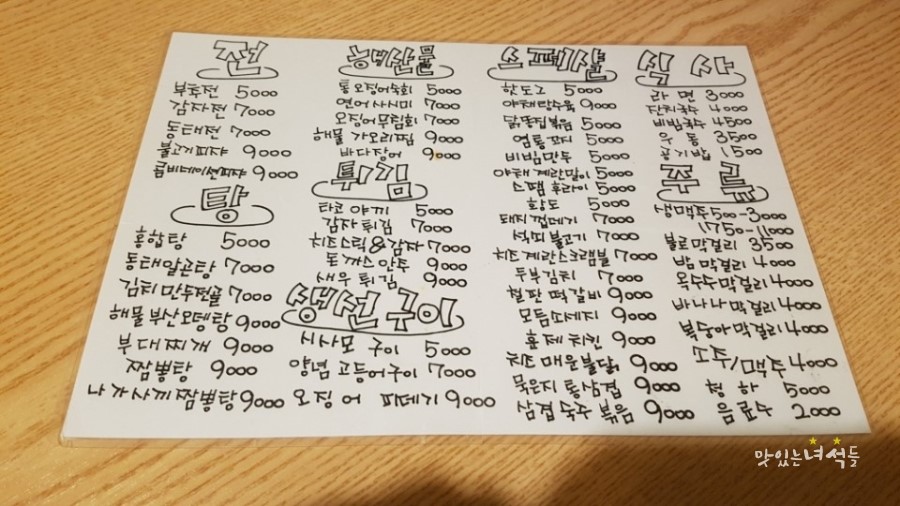 전
부추전 5000
감자전 7000
동태전 7000
불고기피자 9000
콤비네이션피자 9000
탕
홍합탕 5000
동태알곤탕 7000
김치만두전골 7000
해물부산오뎅탕 9000
부대찌개 9000
짬뽕탕 9000
나가사끼짬뽕탕 9000
통오징어숙회 5000
연어사시미 7000
오징어무침회 7000
해물 가오리찜 9000
바다장어 9000
튀김
타코야끼 5000
감자튀김 7000
치즈스틱&감자 7000
돈까스안주 9000
새우튀김 9000
생선구이
시사모 구이 5000
양념 고등어구이 7000
오징어 피데기 9000
핫도그 5000
야채탕수육 9000
닭똥집볶음 5000
염통꼬지 5000
비빔만두 5000
야채계란말이 5000
스팸후라이 5000
황도 5000
돼지껍데기 7000
석쇠불고기 7000
치즈계란스크램블 7000
두부김치 7000
철판떡갈비 9000
모듬소세지 9000
훈제치킨 9000
치즈매운불닭 9000
묵은지통삼겹 9000
삼겹숙주볶음 9000
식사
라면 3000
잔치국수 4000
비빔국수 4500
우동 3500
공기밥 1500
주류
생맥주500-3000
1750-11000
불로막걸리 3500
밤막걸리 4000
옥수수막걸리 4000
바나나막걸리 4000
복숭아막걸리 4000
소주/맥주 4000
청하 5000
음료수 2000
맛있는녀석들